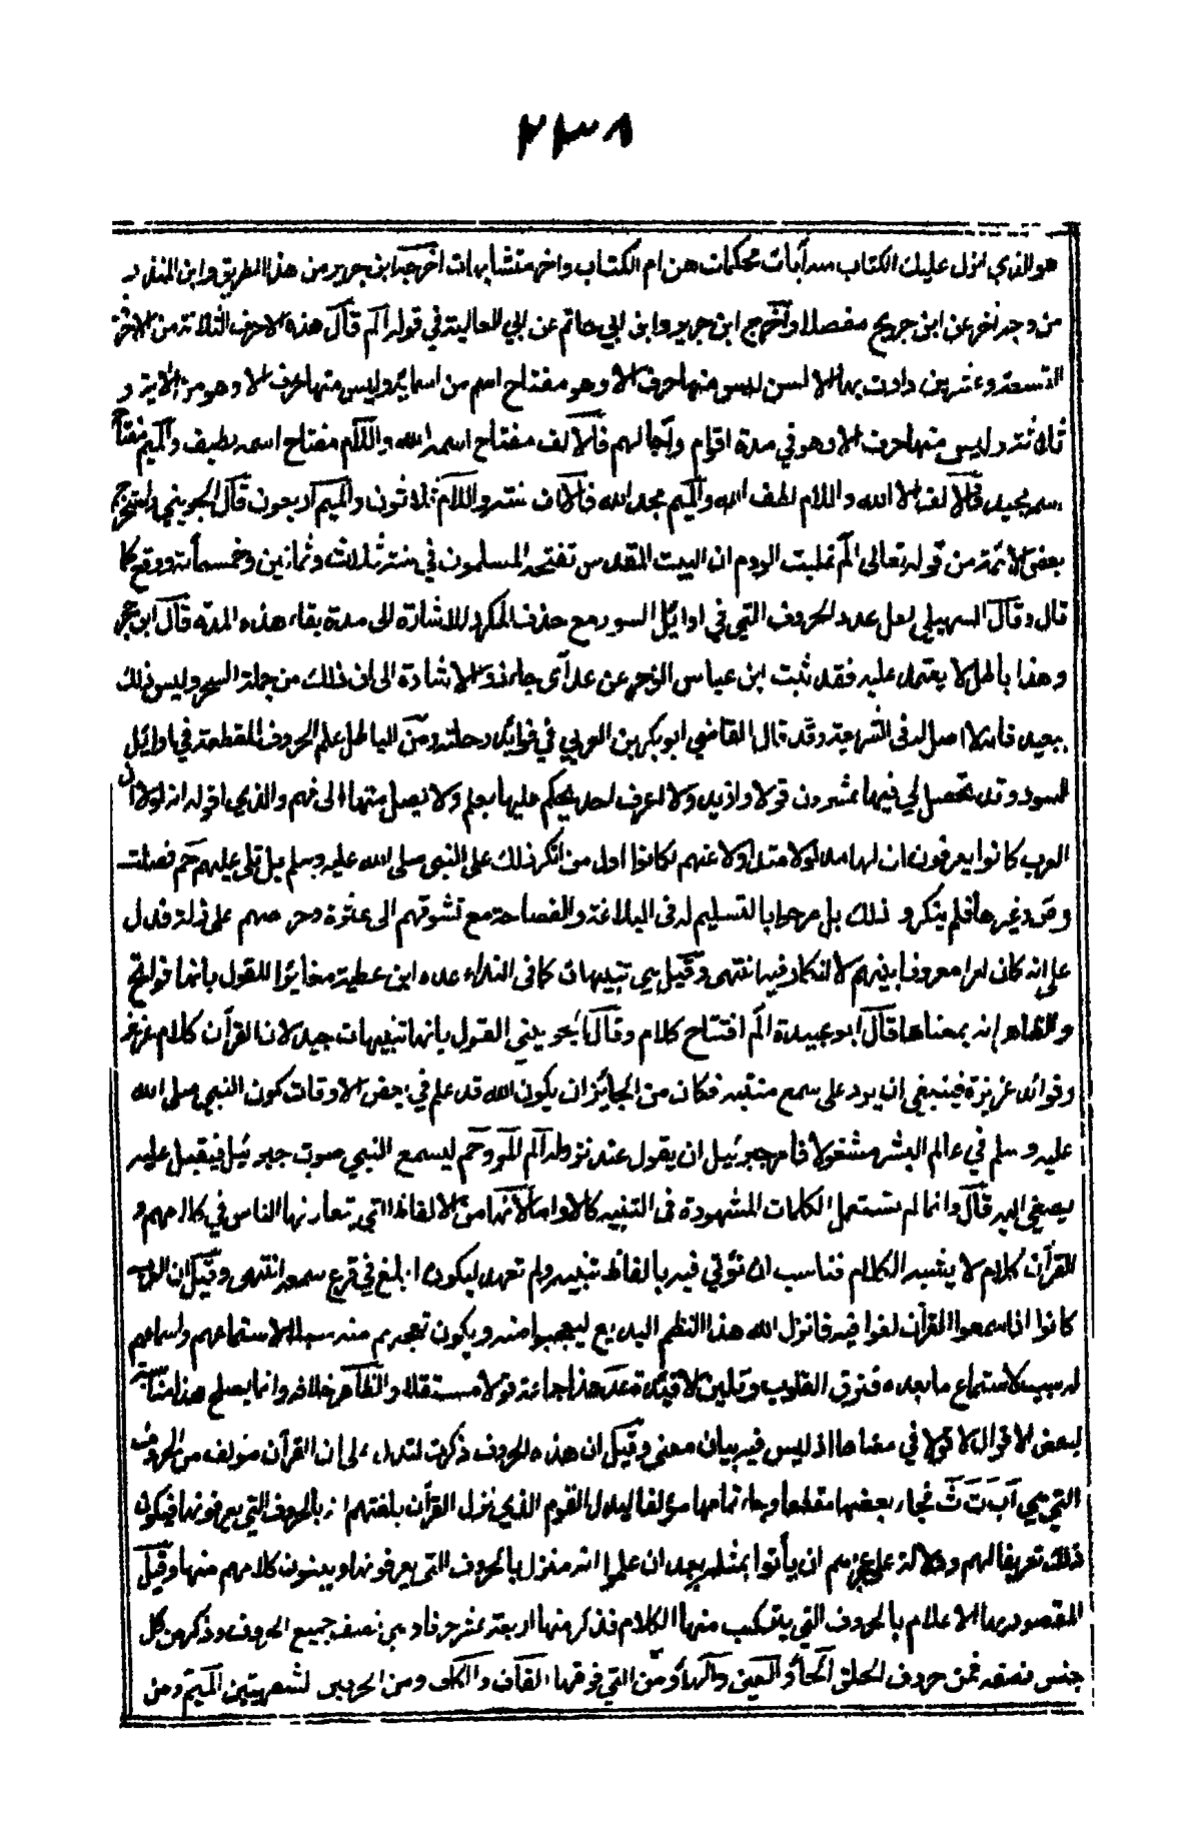 ٢٣٨
هو الذي انزل عليك الكتاب منه آيات محكمات هن ام الكتاب واخر متشابهات اخرجه ابن جرير من هذا الطريق وابن المنذر
من وجه اخر عن ابن جريج مفصلا واخرج ابن جرير وابن ابي حاتم عن ابي العالية في قوله الم قال هذه الاحرف الثلاثة من الاحرف
التسعة وعشرين دارت بها الالسن ليس منها حرف الا وهو مفتاح اسم من اسمائه وليس منها حرف الا وهو من الايه و
ثلاثته وليس منها حرف الا وهو في مدة اقوام وآجالهم فالالف مفتاح اسمه الله واللام مفتاح اسمه لطيف والميم مفتاح
اسمه مجيد فالالف الاء الله واللام لطف الله والميم مجد الله فالالف سنة واللام ثلاثون والميم اربعون قال الجويني واستخرج
بعض الائمة من قوله تعالى الم غلبت الروم ان البيت المقدس تفتحه المسلمون في سنة ثلاث وثمانين وخمسمأة ووقع كما
قال وقال السهيلي لعل عدد الحروف التي في اوائل السور مع حذف المكرر للاشارة الى مدة بقاء هذه المدة قال ابن حجر
وهذا باطل لا يعتمد عليه فقد ثبت ابن عباس الزجر عن عد آبى جاد والاشارة الى ان ذلك من جملة السحر وليس ذلك
ببعيد فانه لا اصل له فى الشريعة وقد قال القاضي ابو بكر بن العربي في فوائد رحلته ومن الباطل علم الحروف المقطعة في اوائل
السور وقد تحصل لي فيها عشرون قولا وازيد ولا اعرف احدا يحكم عليها بعلم ولا يصل منها الى فهم والذي اقوله انه لولا ان
العرب كانوا يعرفون ان لها مدلولا متداولا عنهم لكانوا اول من انكر ذلك على النبى صلى الله عليه وسلم بل تلى عليهم حم فصلت
وص وغيرها فلم ينكروا ذلك بل صرحوا بالتسليم له فى البلاغة والفصاحة مع تشوقهم الى عثرة وحرصهم على زلة فدل
على انه كان امرا معروفا بينهم لا انكار فيه انتهى وقيل هي تنبيهات كما فى النداء عده ابن عطية مغايرا للقول بانها فواتح
والظاهر انه بمعناها قال ابو عبيدة الم افتتاح كلام وقال الجويني القول بانها تنبيهات جيد لان القرآن كلام عزيز
وفوائده عزيزة فينبغي ان يرد على سمع منتبه فكان من الجائز ان يكون الله قد علم في بعض الاوقات كون النبي صلى الله
عليه وسلم في عالم البشر مشغولا فامر جبرئيل ان يقول عند نزوله الم المر وحم ليسمع النبي صوت جبرئيل فيقبل عليه
ويصغي اليه قال وانما لم تستعمل الكلمات المشهورة فى التنبيه كالا واما لانها من الالفاظ التي تعارفها الناس في كلامهم و
القرآن كلام لا يشبه الكلام فناسب ان نؤتي فيه بالفاظ تنبيه ولم تعهد ليكون ابلغ في قرع سمعه انتهى وقيل ان العرب
كانوا اذا سمعوا القرآن لغوا فيه فانزل الله هذا النظم البديع ليعجبوا منه ويكون تعجبهم منه سببا لاستماعهم واستماعهم
له سبب لاستماع ما بعده فترق القلوب وتلين الافئدة عد هذا جماعة قولا مستقلا والظاهر خلافه وانما يصلح هذا مناسبة
لبعض الاقوال لا قولا في معناها اذ ليس فيه بيان معنى وقيل ان هذه الحروف ذكرت لتدل على ان القرآن مؤلف من الحروف
التي هي آ ب ت ث فجاء بعضها مقطعا وجاء تمامها مؤلفا ليدل القوم الذي نزل القرآن بلغتهم انه بالحروف التي يعرفونها فيكون
ذلك تعريفا لهم ودلالة على عجزهم ان يأتوا بمثله بعد ان علموا انه منزل بالحروف التي يعرفونها ويبنون كلامهم منها وقيل
المقصود بها الاعلام بالحروف التي يتركب منها الكلام فذكر منها اربعة عشر حرفا وهي نصف جميع الحروف وذكر من كل
جنس نصفه فمن حروف الحلق الحأ والعين والهأ ومن التي فوقها القاف والكاف ومن الحرفين الشفهيتين الميم ومن